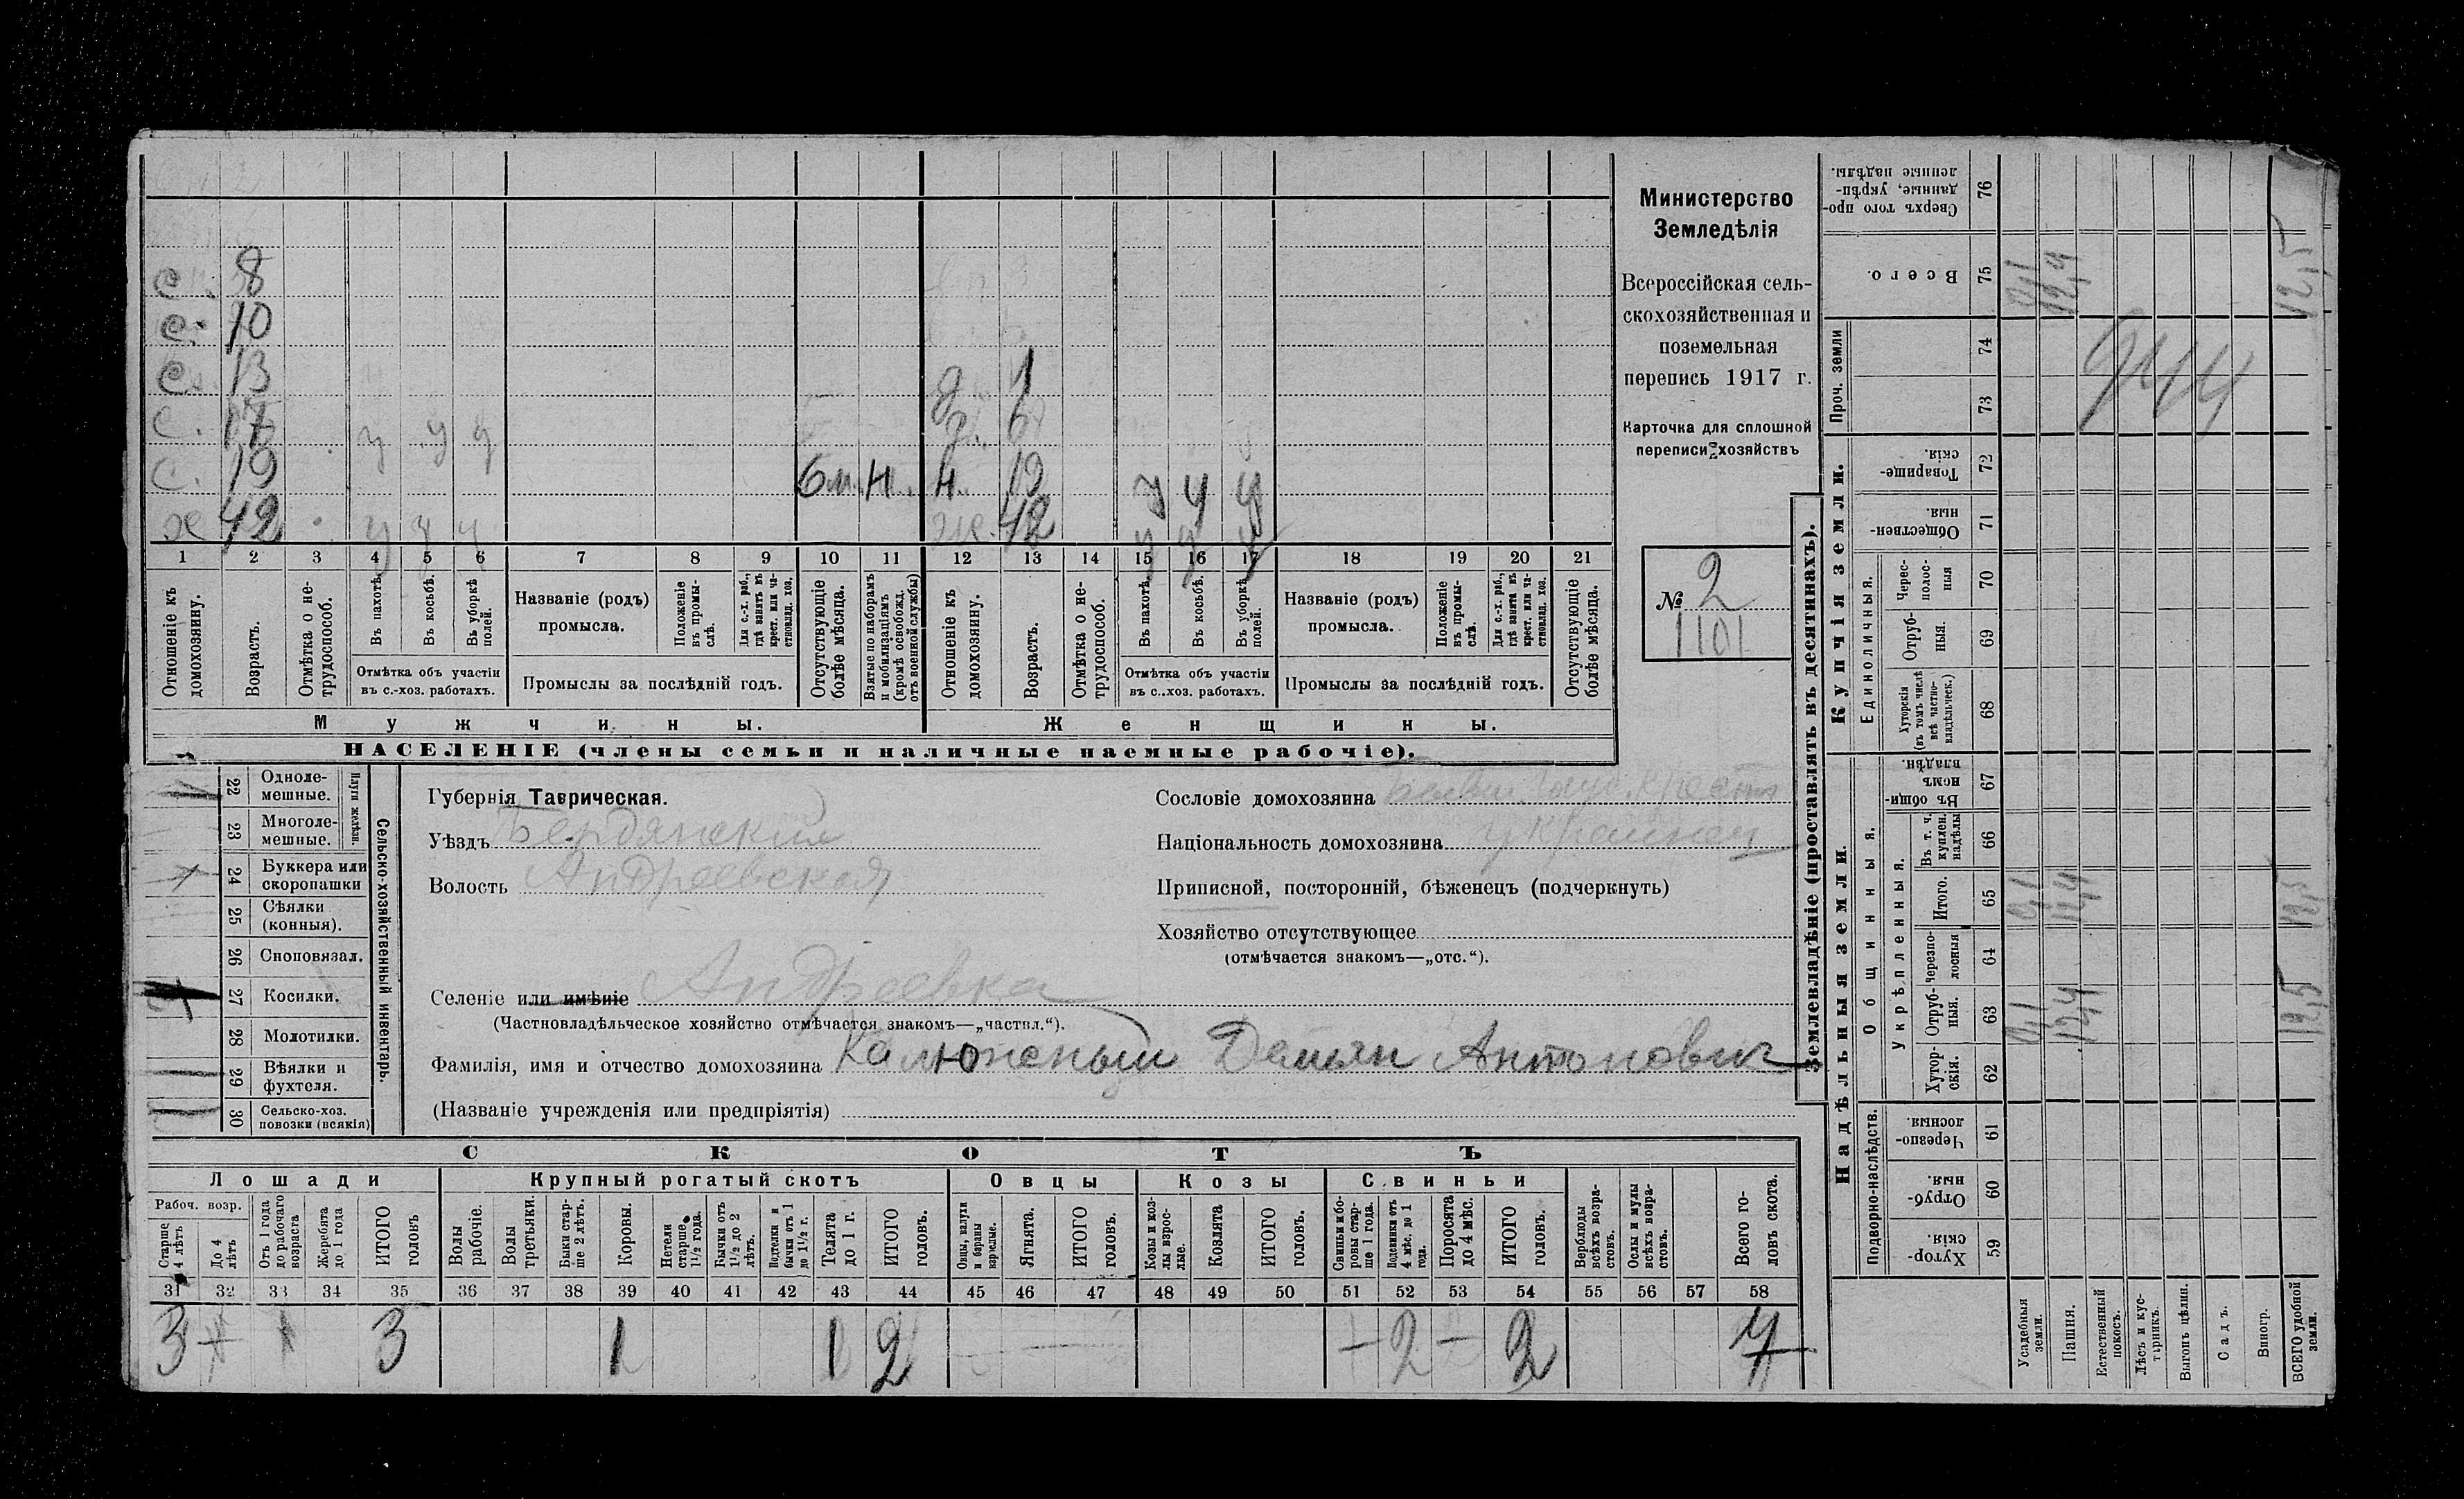 с. 8
с. 10
с. 13 д. 1
с. 17 у у у д. 6
с. 19 6 м. н. н. 19 у у у
х 42 у у у ж. 42 у у у
1 2 3 4 5 6 7 8 9 10 11 12 13 14 15 16 17 18 19 20 21
Отношеніе къ домохозяину.
Возрастъ.
Отмѣтка о нетрудоспособ.
Въ пахотѣ.
Въ косьбѣ.
Въ уборкѣ полей.
Отмѣтка объ участіи въ с.-хоз. работахъ.
Названіе (родъ) промысла.
Положеніе въ промыслѣ.
Для с.-х. раб., гдѣ занятъ въ крест. или частновлад. хоз.
Промыслы за послѣдній годъ.
Отсутствующіе болѣе мѣсяца.
Взятые по наборамъ и мобилизаціямъ (кромѣ освобожд. отъ военной службы)
Отношеніе къ домохозяину.
Возрастъ.
Отмѣтка о нетрудоспособ.
Въ пахотѣ.
Въ косьбѣ.
Въ уборкѣ полей.
Отмѣтка объ участіи въ с.-хоз. работахъ.
Названіе (родъ) промысла.
Положеніе въ промыслѣ.
Для с.-х. раб., гдѣ занята въ крест. или частновлад. хоз.
Промыслы за послѣдній годъ.
Отсутствующіе болѣе мѣсяца.
Мужчины.
Женщины.
НАСЕЛЕНІЕ (члены семьи и наличные наемные рабочіе).
Министерство
Земледѣлія
Всероссійская сель-
скохозяйственная и
поземельная
перепись 1917 г.
Карточка для сплошной
переписи хозяйствъ
№ 2
1101
22 Одноле-мешные.
23 Многоле-мешные.
Плуги желѣзн.
24 Буккера или скоропашки
25 Сѣялки (конныя).
26 Сноповязал.
27 Косилки.
28 Молотилки.
29 Вѣялки и фухтеля.
30 Сельско-хоз. повозки (всякія)
Сельско-хозяйственный инвентарь.
Губернія Таврическая.
Уѣздъ Бердянский
Волость Андреевская
Сословіе домохозяина крестъ
Національность домохозяина украинец
Приписной, посторонній, бѣженецъ (подчеркнуть)
Хозяйство отсутствующее
(отмѣчается знакомъ—„отс.“).
Селеніе или имѣніе Андреевка
(Частновладѣльческое хозяйство отмѣчается знакомъ—„частвл.“).
Фамилія, имя и отчество домохозяина Калюжный Демьян Антонович
(Названіе учрежденія или предпріятія)
СКОТЪ
Лошади Крупный рогатый скотъ Овцы Козы Свиньи
Рабоч. возр.
Старше 4 лѣтъ
До 4 лѣтъ
Отъ 1 года до рабочаго возраста
Жеребята до 1 года
ИТОГО головъ
Волы рабочіе.
Волы третьяки.
Быки старше 2 лѣтъ.
Коровы.
Нетели старше 1½ года.
Бычки отъ 1½ до 2 лѣтъ.
Подтелки и бычки отъ 1 до 1½ г.
Телята до 1 г.
ИТОГО головъ.
Овцы, валухи и бараны взрослые.
Ягнята.
ИТОГО головъ.
Козы и козлы взрослые.
Козлята
ИТОГО головъ.
Свиньи и боровы старше 1 года.
Подсвинки отъ 4 мѣс. до 1 года.
Поросята до 4 мѣс.
ИТОГО головъ.
Верблюды всѣхъ возрастовъ.
Ослы и мулы всѣхъ возрастовъ.
Всего головъ скота.
31 32 33 34 35 36 37 38 39 40 41 42 43 44 45 46 47 48 49 50 51 52 53 54 55 56 57 58
3 3 1 1 2 — 2 — 2 7
Землевладѣніе (проставлять въ десятинахъ).
Купчія земли.
Надѣльныя земли.
Сверхъ того проданные, укрѣпленные надѣлы. 76
Всего. 75
Проч. земли
74
73
Товарищескія. 72
Общественныя. 71
Единоличныя.
Черес-полосныя 70
Отруб-ныя. 69
Хуторскія (въ томъ числѣ всѣ частновладѣльческ.) 68
Общинныя.
Въ общинномъ владѣн. 67
Укрѣпленныя.
Въ т. ч. куплен. надѣлы 66
Итого. 65
Черезполосныя 64
Отруб-ныя. 63
Хутор-скія. 62
Подворно-наслѣдств.
Черезпо-лосныя 61
Отруб-ныя. 60
Хутор-скія. 59
Усадебныя земли.
Пашня.
Естественный покосъ.
Лѣсъ и кустарникъ.
Выгонъ цѣлин.
Садъ.
Виногр.
ВСЕГО удобной земли.
0,1 12,4 12,5
944
0,1 12,4 12,5
0,1 12,4 12,5